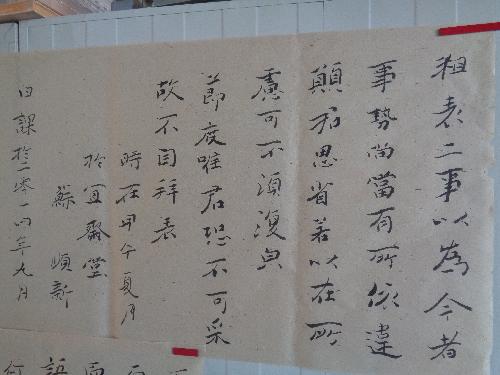 粗表二事以為今者
事勢尚當有所依違
願君思省若以在所
慮可不須復皃
節度唯君恐不可采
故不自拜表
時在甲午夏月
於宜齋堂
蘇順新
日課於二零一四年九月